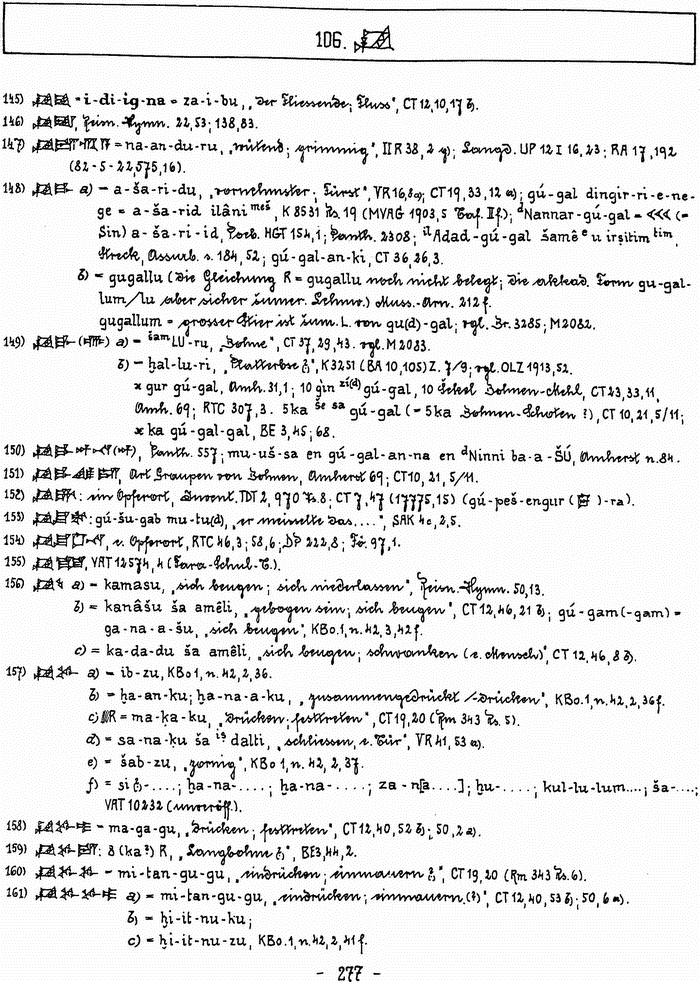 106.
145) = i-di-ig-na = za-i-bu, „der Fliessende; Fluss", CT 12,10,17 b.
146) , Reisn. Hymn. 22,53; 138,83.
147) = na-an-du-ru, „wütend; grimmig", II R 38, 2 g; Langd. UP 12 I 16, 23; RA 17, 192
(82-5-22,575,16).
148) a) = a-ša-ri-du, „vornehmster; Fürst", VR 16,8a; CT 19, 33, 12 a; gú-gal dingir-ri-e-ne-
ge = a-ša-rid ilâni meš, K 8531 Rs. 19 (MVAG 1903, 5 Taf. II f.); dNannar-gú-gal = <<< (=
Sin) a-ša-ri-id, Poeb. HGT 154,1; Panth. 2308; ilAdad-gú-gal šamê e u irṣitim tim,
Streck, Assurb. s. 184, 52; gú-gal-an-ki, CT 36, 26,3.
b) = gugallu (die Gleichung R = gugallu noch nicht belegt; die akkad. Form gu-gal-
lum/lu aber sicher šumer. Lehnw.) Muss.-Arn. 212 f.
gugallum = grosser Stier ist šum. L. von gu(d)-gal; vgl. Br. 3285; M 2082.
149) a) = šam LU-ru, „Bohne", CT 37, 29, 43. vgl. M 2083.
b) = ḫal-lu-ri, „Platterbse", K 3251 (BA 10, 105) Z. 7/9; vgl. OLZ 1913, 52.
x gur gú-gal, Amh. 31,1; 10 gin zí(d) gú-gal, 10 Šekel Bohnen-Mehl, CT 23, 33, 11,
Amh. 69; RTC 307, 3. 5 ka še sa gú-gal (= 5 ka Bohnen-Schoten ?), CT 10, 21, 5/11;
x ka gú-gal-gal, BE 3, 45; 68.
150) , Panth. 557; mu-uš-sa en gú-gal-an-na en dNinni ba-a-ŠÚ, Amherst n. 84.
151) , Art Graupen von Bohnen, Amherst 69; CT 10, 21, 5/11.
152) : ein Opferort, Invent. TDT 2, 970 Rs. 8; CT 7, 47 (17775, 15) (gú-peš-engur ( )-ra).
153) : gú-šu-gab mu-tu(d), „er meiselte das....", SAK 4c, 2,5.
154) , e. Opferort, RTC 46,3; 58,6; DP 222,8; Fö. 97,1.
155) , VAT 12574, 4 (Fara-Schul-T.).
156) a) = kamasu, „sich beugen; sich niederlassen", Reisn. Hymn. 50,13.
b) = kanâšu ša amêli, „gebogen sein; sich beugen", CT 12, 46, 21 b; gú-gam(-gam) =
ga-na-a-šu, „sich beugen", KBo. 1, n. 42, 3, 42 f.
c) = ka-da-du ša amêli, „sich beugen; schwanken (e. Mensch)", CT 12, 46, 8 b.
157) a) = ib-zu, KBo 1, n. 42, 2, 36.
b) = ḫa-an-ku; ḫa-na-a-ku, „zusammengedrückt /-drücken", KBo. 1, n. 42, 2, 36 f.
c) R = ma-ḳa-ku, „drücken; festtreten", CT 19, 20 (Rm 343 Rs. 5).
d) = sa-na-ḳu ša iṣ dalti, „schliessen, e. Tür", VR 41, 53 a.
e) = šab-zu, „zornig", KBo 1, n. 42, 2, 37.
f) = si-....; ḫa-na-....; ḫa-na-....; za-n[a....]; ḫu-....; kul-lu-lum....; ša-....;
VAT 10232 (unveröff.).
158) = ma-ga-gu, „drücken; festtreten", CT 12, 40, 52 b; 50, 2 a.
159) : 8 (ka?) R, „Langbohne", BE 3, 44, 2.
160) = mi-tan-gu-gu, „eindrücken; einmauern", CT 19, 20 (Rm 343 Rs. 6).
161) a) = mi-tan-gu-gu, „eindrücken; einmauern (?)", CT 12, 40, 53 b; 50, 6 a).
b) = ḫi-it-nu-ku;
c) = ḫi-it-nu-zu, KBo. 1, n. 42, 2, 41 f.
- 277 -